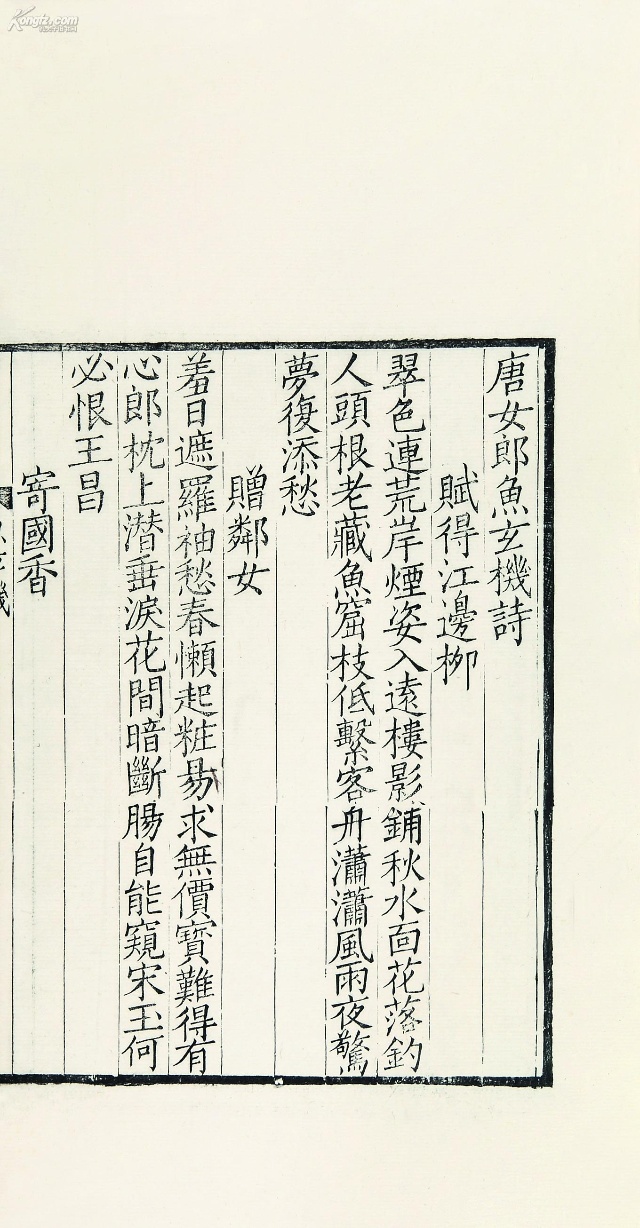 Kongfz.com
唐女郎魚玄機詩
賦得江邊栁
翠色連荒岸煙姿入遠樓影鋪秋水面花落釣
人頭根老藏魚窟枝低繫客舟瀟瀟風雨夜驚
夢復添愁
贈鄰女
羞日遮羅袖愁春懶起粧昜求無價寶難得有
心郎枕上潜垂淚花間暗斷腸自能窺宋玉何
必恨王昌
寄國香